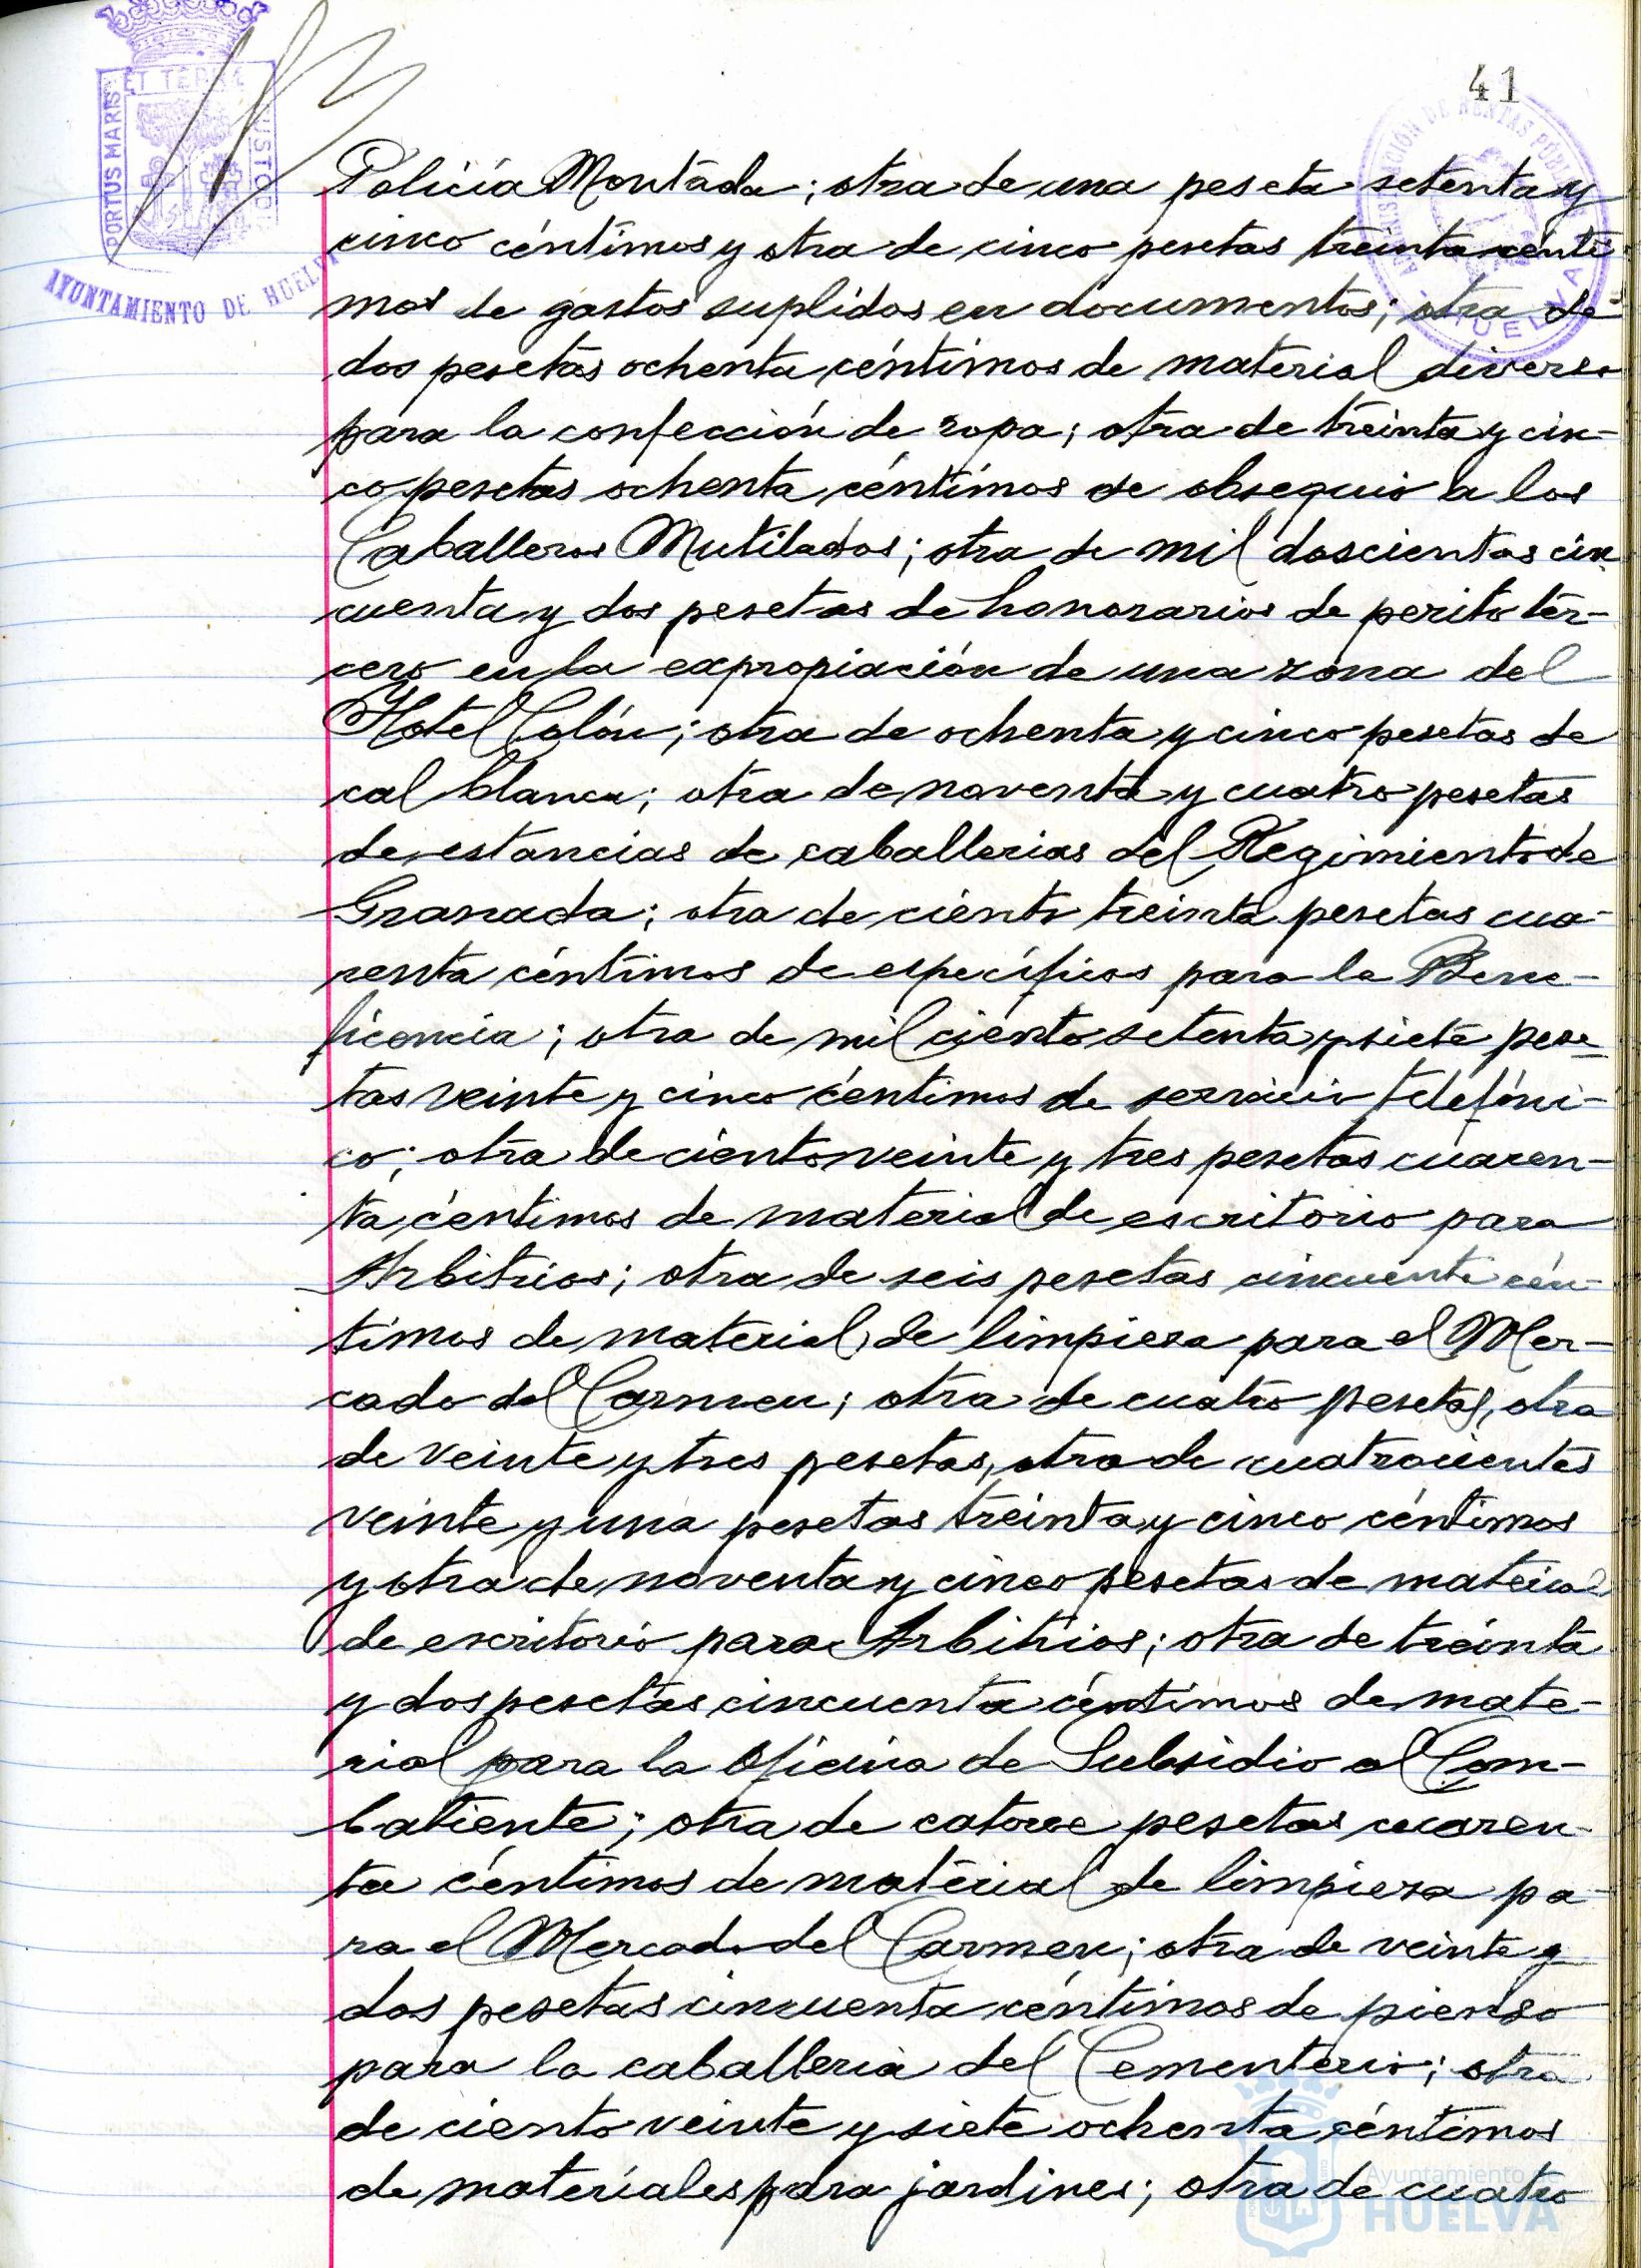 41
PORTUS MARIS ET TERRE CUSTODIA
AYUNTAMIENTO DE HUELVA
ADMINISTRACIÓN DE RENTAS PÚBLICAS
HUELVA
Policía Montada; otra de una peseta setenta y
cinco céntimos y otra de cinco pesetas treinta cénti-
mos de gastos suplidos en documentos; otra de
dos pesetas ochenta céntimos de material diverso
para la confección de ropa; otra de treinta y cin-
co pesetas ochenta céntimos de obsequio a los
Caballeros Mutilados; otra de mil doscientas cin
cuenta y dos pesetas de honorarios de perito ter-
cero en la expropiación de una zona del
Hotel Colón; otra de ochenta y cinco pesetas de
cal blanca; otra de noventa y cuatro pesetas
de estancias de caballerias del Regimiento de
Granada; otra de ciento treinta pesetas cua-
renta céntimos de específicos para la Bene-
ficencia; otra de mil ciento setenta y siete pese-
tas veinte y cinco céntimos de servicio telefóni-
co; otra de ciento veinte y tres pesetas cuaren-
ta céntimos de material de escritorio para
Arbitrios; otra de seis pesetas cincuenta cén-
timos de material de limpieza para el Mer-
cado del Carmen; otra de cuatro pesetas, otra
de veinte y tres pesetas, otra de cuatrocientas
veinte y una pesetas treinta y cinco céntimos
y otra de noventa y cinco pesetas de material
de escritorio para Arbitrios; otra de treinta
y dos pesetas cincuenta céntimos de mate-
rial para la Oficina de Subsidio al Com-
batiente; otra de catorce pesetas cuaren-
ta céntimos de material de limpieza pa-
ra el Mercado del Carmen; otra de veinte y
dos pesetas cincuenta céntimos de pienso
para la caballeria del Cementerio; otra
de ciento veinte y siete ochenta céntimos
de materiales para jardines; otra de cuatro
Ayuntamiento de
HUELVA